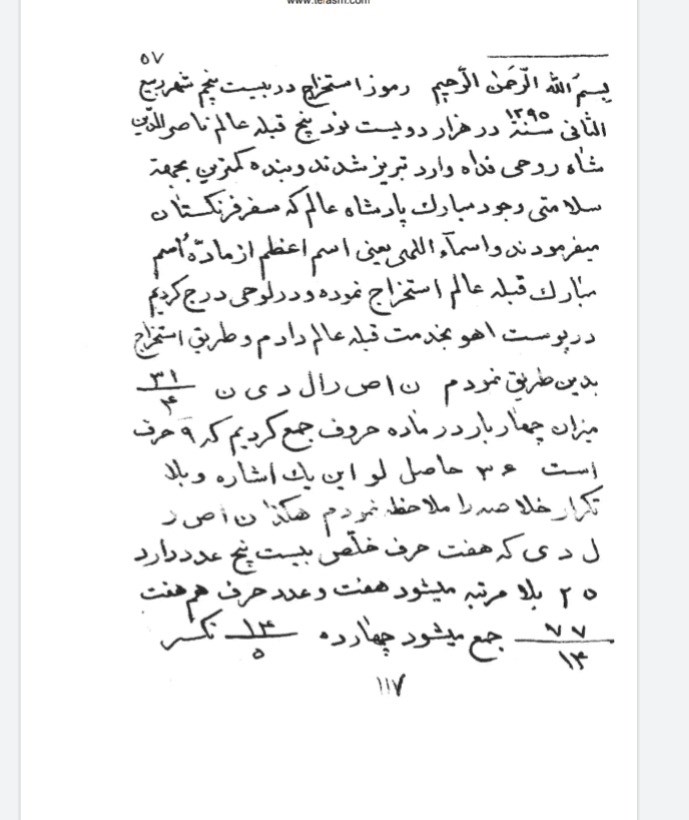 www.terasm.com
۵۷
بسم الله الرّحمن الرّحیم رموز استخراج در بیست پنجم شهر ربیع
الثانی سنة ۱۲۹۵ در هزار دویست نود پنج قبله عالم ناصر الدّین
شاه روحی فداه وارد تبریز شدند و بنده کمترین بجهة
سلامتی وجود مبارك پادشاه عالم که سفر فرنکستان
میفرمودند و اسمآء اللهی یعنی اسم اعظم از مادّه اسم
مبارك قبله عالم استخراج نموده و در لوحی درج کردیم
در پوست اهو بخدمت قبله عالم دادم و طریق استخراج
بدین طریق نمودم ن ا ص ر ا ل د ی ن ۳۱ ۴
میزان چهار بار در ماده حروف جمع کردیم که ۹ حرف
است ۳۶ حاصل لو این یك اشاره و بلا
تکرار خلاصه را ملاحظه نمودم هکذا ن ا ص ر
ل د ی که هفت حرف خلّص بیست پنج عدد دارد
۲۵ بلا مرتبه میشود هفت و عدد حرف هم هفت
۷۷ ۱۴ جمع میشود چهارده ۱۴ ۵ تکسر
۱۱۷